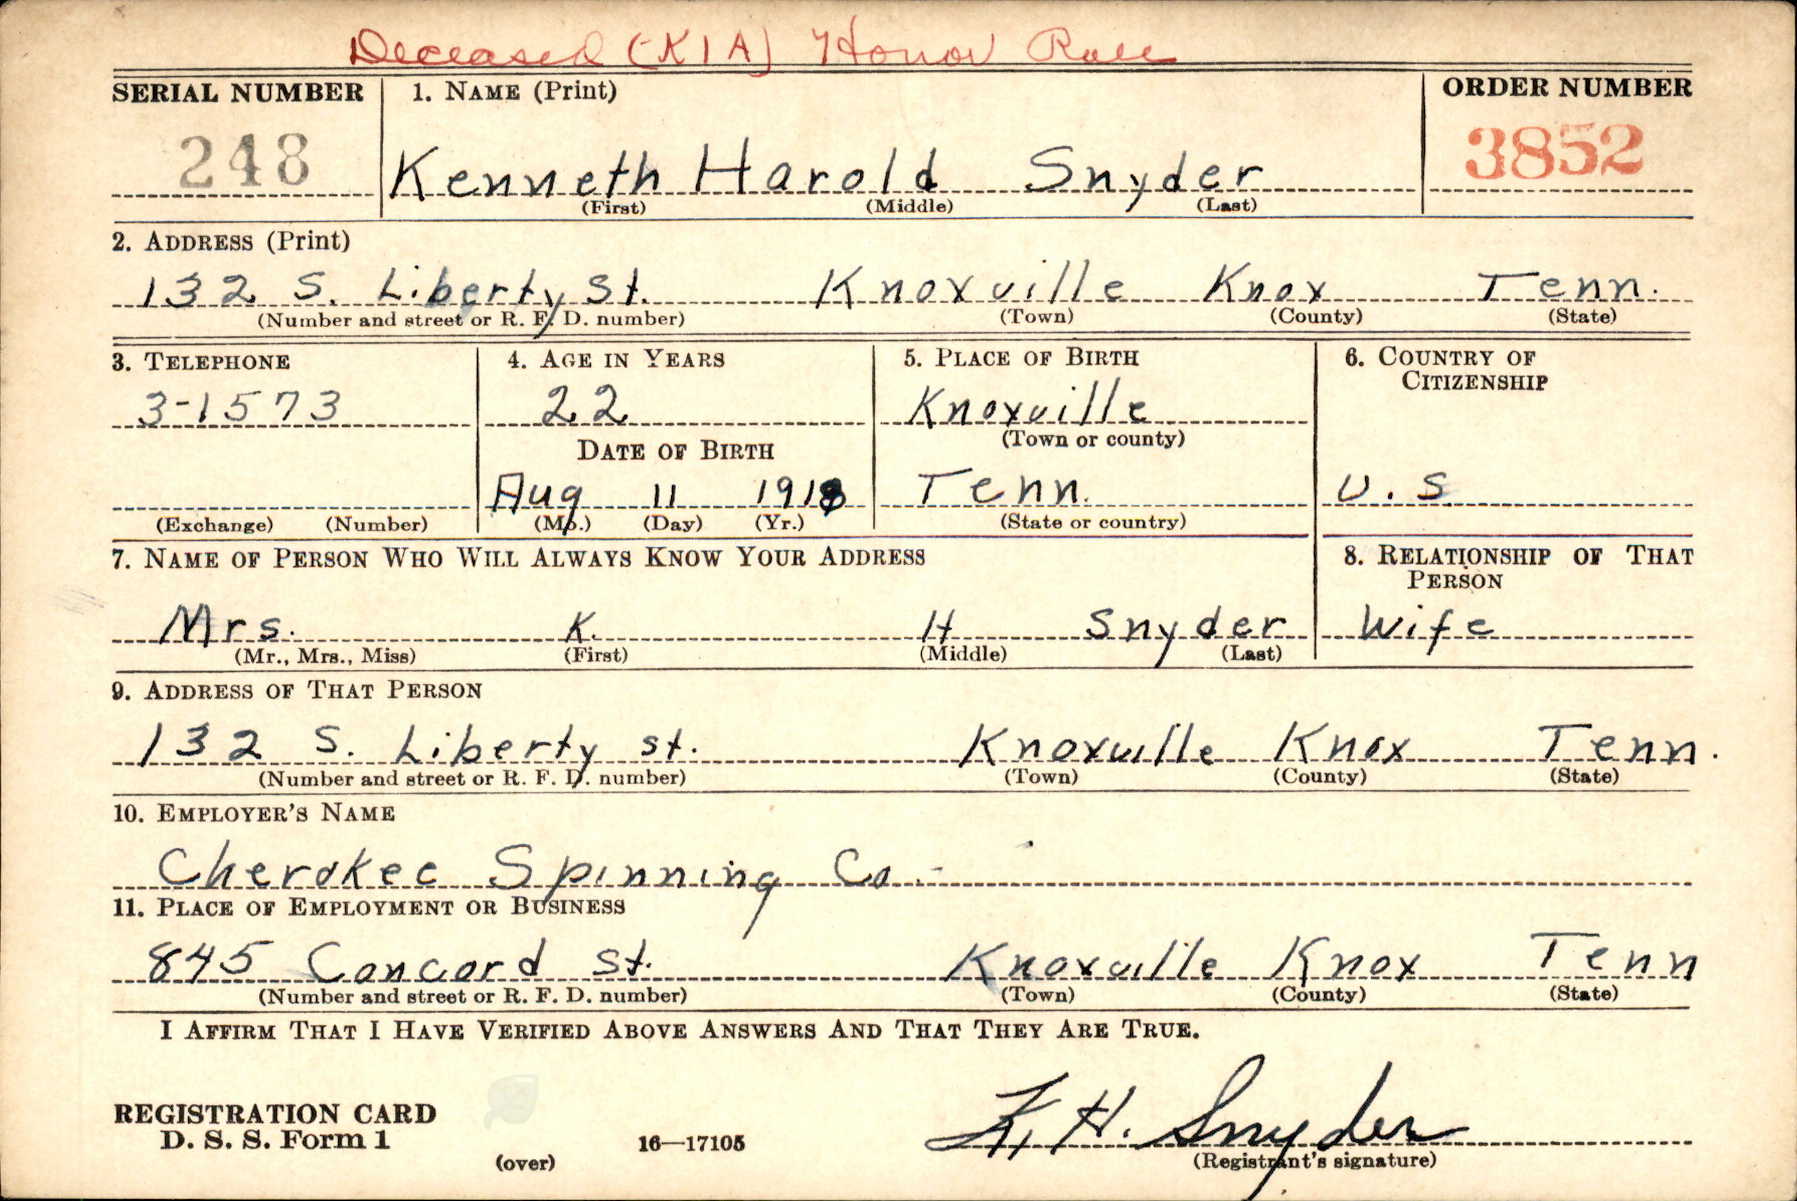 Deceased (KIA) Honor Roll
SERIAL NUMBER 1. NAME (Print) ORDER NUMBER
248 Kenneth Harold Snyder 3852
(First) (Middle) (Last)
2. ADDRESS (Print)
132 S. Liberty St. Knoxville Knox Tenn.
(Number and street or R. F. D. number) (Town) (County) (State)
3. TELEPHONE 4. AGE IN YEARS 5. PLACE OF BIRTH 6. COUNTRY OF
CITIZENSHIP
3-1573 22 Knoxville
(Town or county)
DATE OF BIRTH
Aug 11 1918 Tenn. U.S
(Exchange) (Number) (Mo.) (Day) (Yr.) (State or country)
7. NAME OF PERSON WHO WILL ALWAYS KNOW YOUR ADDRESS 8. RELATIONSHIP OF THAT
PERSON
Mrs. K. H Snyder Wife
(Mr., Mrs., Miss) (First) (Middle) (Last)
9. ADDRESS OF THAT PERSON
132 S. Liberty st. Knoxville Knox Tenn.
(Number and street or R. F. D. number) (Town) (County) (State)
10. EMPLOYER'S NAME
Cherokee Spinning Co.
11. PLACE OF EMPLOYMENT OR BUSINESS
845 Concord St. Knoxville Knox Tenn
(Number and street or R. F. D. number) (Town) (County) (State)
I AFFIRM THAT I HAVE VERIFIED ABOVE ANSWERS AND THAT THEY ARE TRUE.
REGISTRATION CARD
D. S. S. Form 1 16—17105 K. H. Snyder
(over) (Registrant's signature)